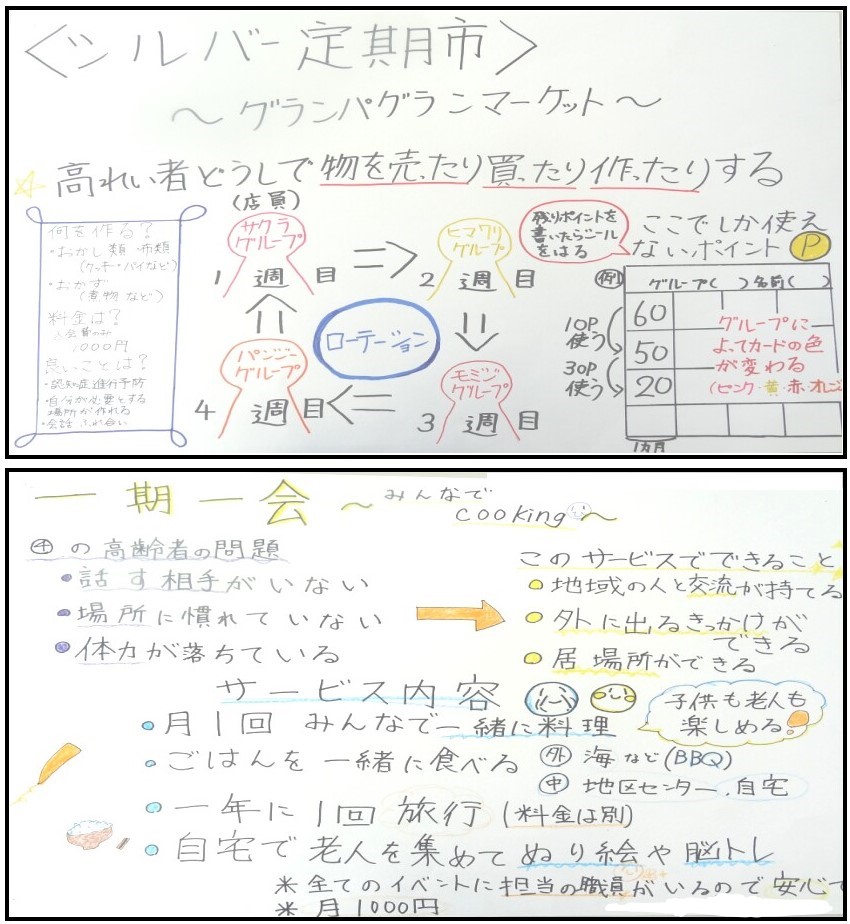 <シルバー定期市>
～グランパグランマーケット～
☆高れい者どうしで物を売ったり買ったり作ったりする
(店員)
何を作る?
・おかし類・布類
(クッキー・パイなど)
・おかず
(煮物など)
料金は?
入会費のみ
1000円
良いことは?
・認知症進行予防
・自分が必要とする
場所が作れる
・会話 ふれ合い
サクラ
グループ
1週目
ヒマワリ
グループ
2週目
ローテーション
パンジー
グループ
4週目
モミジ
グループ
3週目
残りポイントを
書いたらシール
をはる
ここでしか使え
ないポイント P
例
グループ( ) 名前( )
60
50
20
10P
使う
30P
使う
グループに
よってカードの色
が変わる
(ピンク・黄・赤・オレンジ
1ヵ月
一期一会～みんなで
cooking～
㊥の高齢者の問題
・話す相手がいない
・場所に慣れていない
・体力が落ちている
このサービスでできること
・地域の人と交流が持てる
・外に出るきっかけが
できる
・居場所ができる
サービス内容
子供も老人も
楽しめる!
・月1回 みんなで一緒に料理
・ごはんを一緒に食べる
外 海など(BBQ)
中 地区センター、自宅
・一年に1回旅行(料金は別)
・自宅で老人を集めてぬり絵や脳トレ
※全てのイベントに担当の職員がいるので安心で
※月1000円